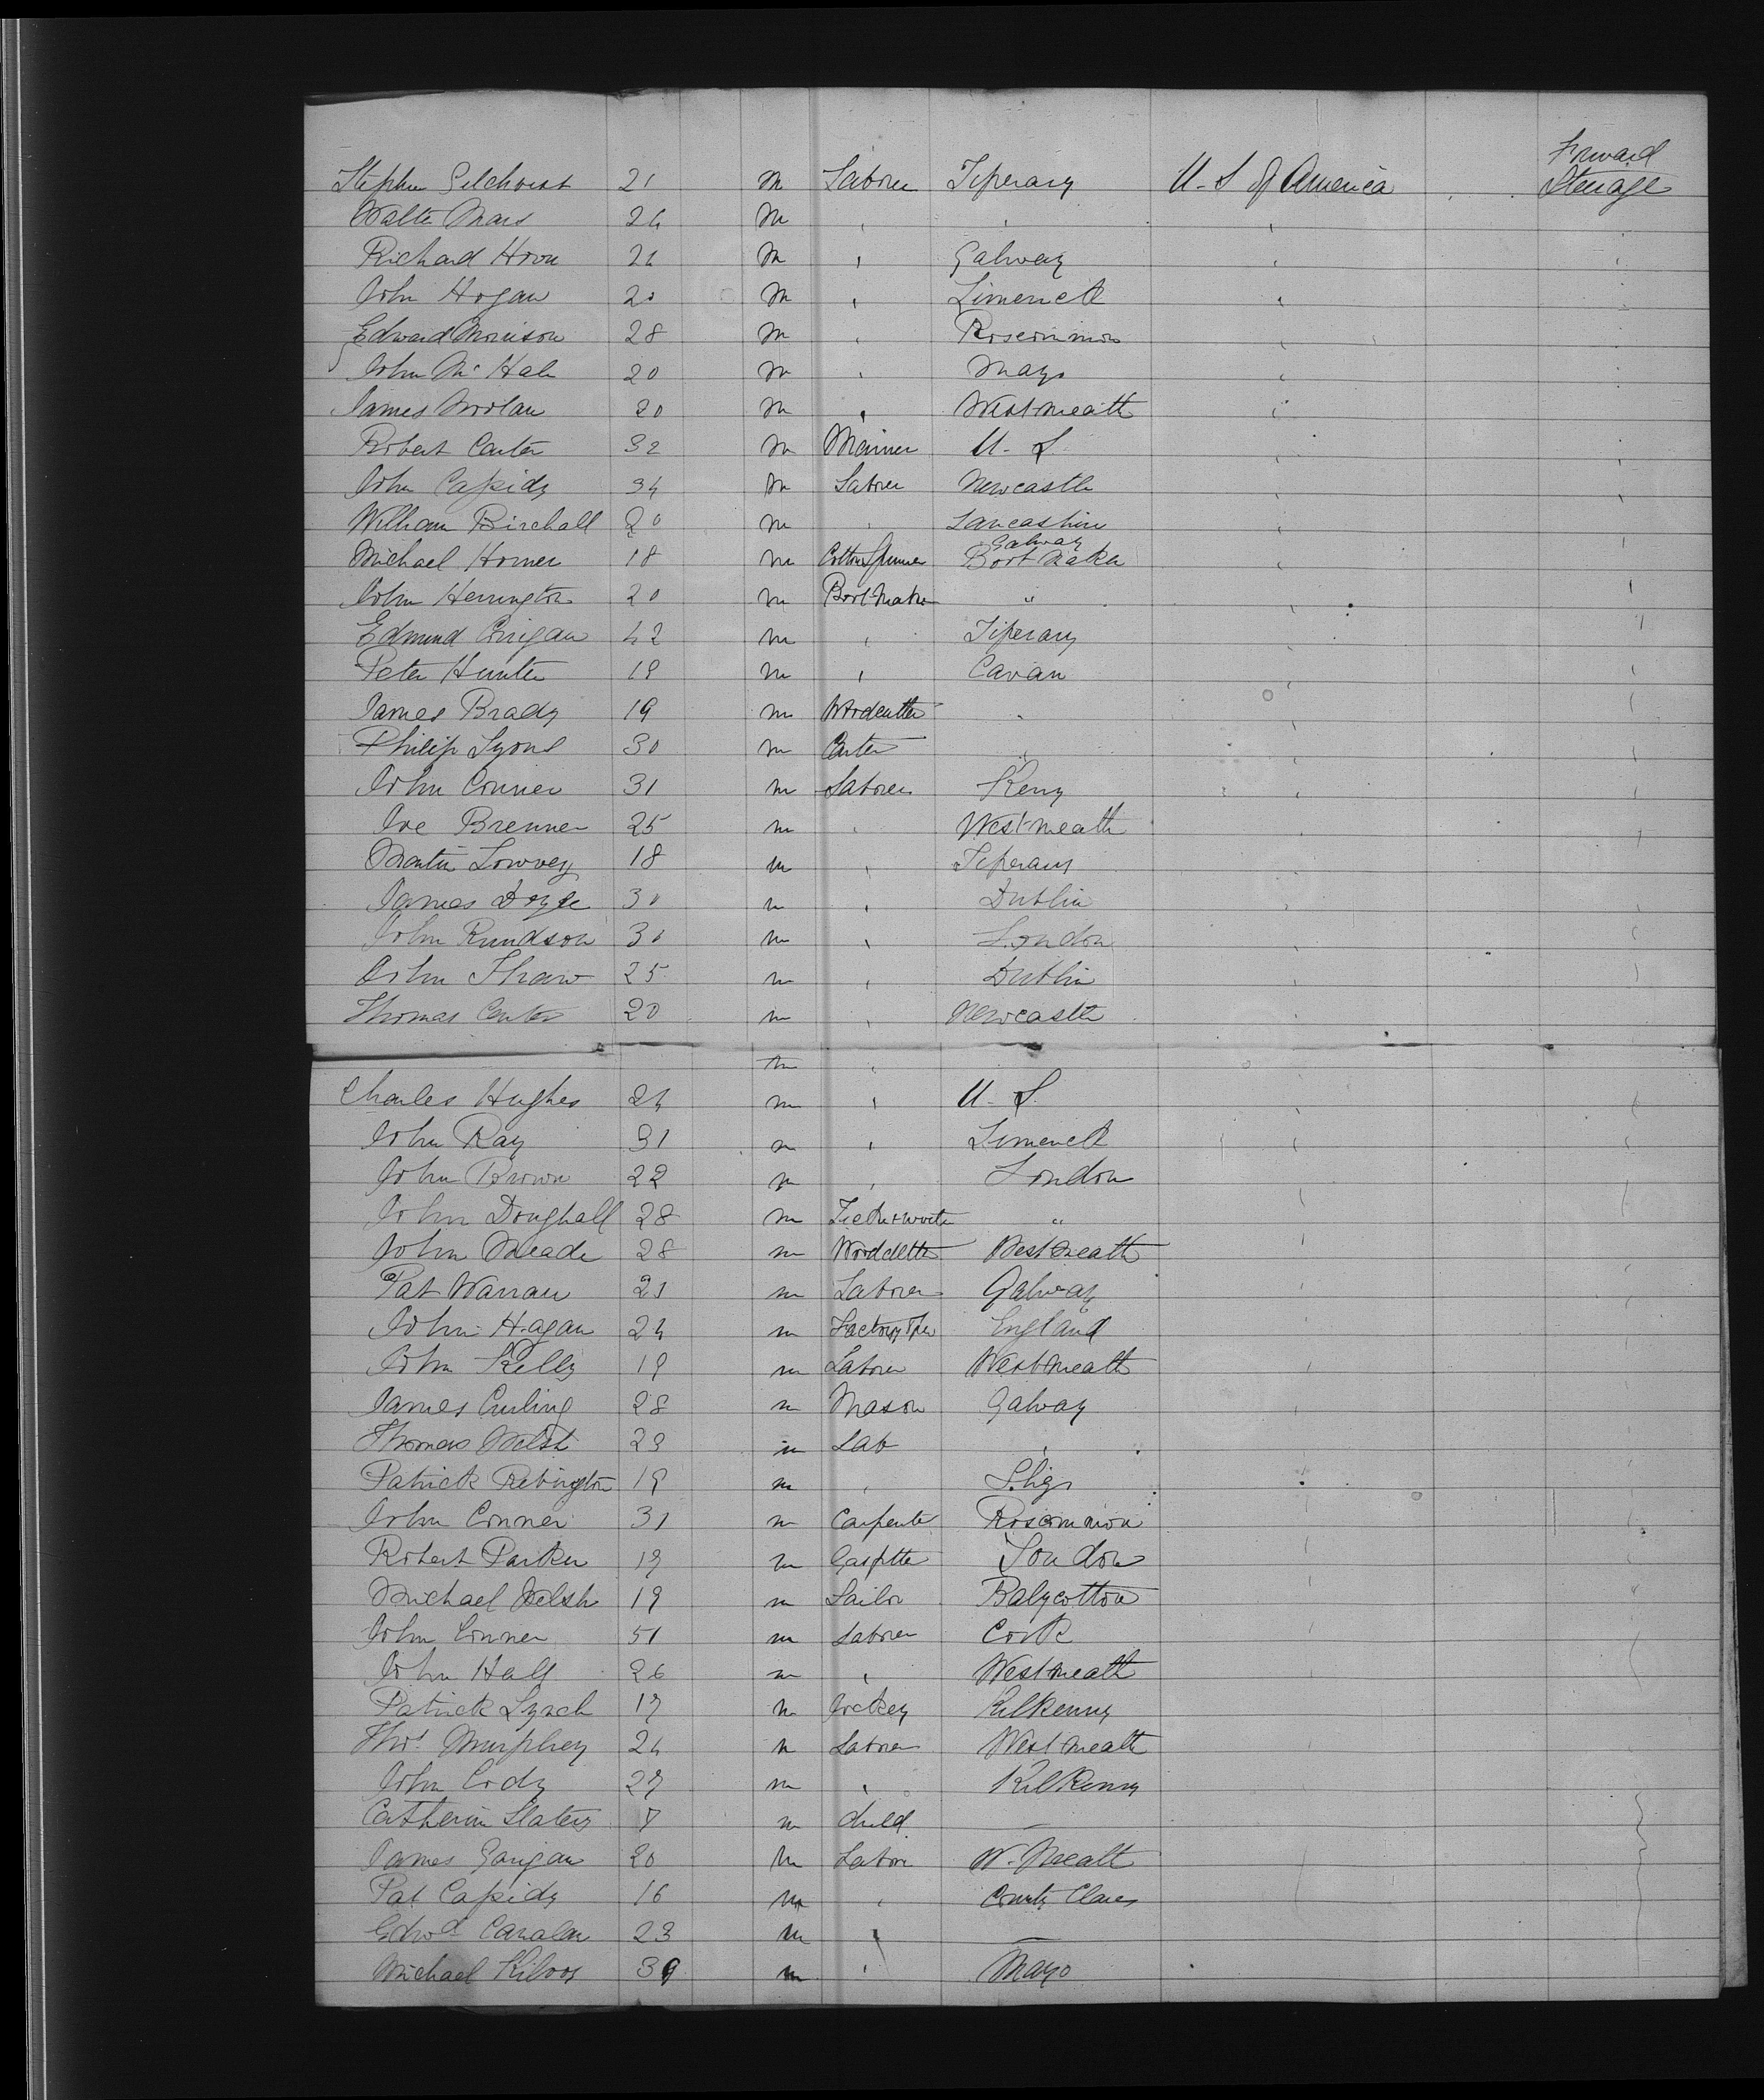 Forward
Stephen Gilchrist 21 m Laborer Tiperary U. S of America Steerage
Walter 24 m
Richard 21 m Galway
John Hogan 20 m Limerick
Edward Morrison 28 m Roscommon
John McHale 20 m Mayo
James Nolan 20 m West-meath
Robert Carter 32 m U. S
John Casidy 34 m Laborer Newcastle
William Birchall 20 m Lancashire
Galway
Michael Horner 18 m Cotton Spinner Boot Maker
John Herrington 20 m Boot-Maker "
Edmund Corrigan 42 m Tiperary
Peter Hunter 19 m Cavan
James Brady 19 m Woodcutter "
Philip Lyons 30 m Carter "
John Conner 31 m Laborer Kerry
Joe Brenner 25 m West-meath
Martin Lowrey 18 m Tiperary
James Doyle 30 m Dublin
John Rundson 30 m London
John Shaw 25 m Dublin
Thomas Carter 20 m Newcastle
m
Charles Hughes 24 m U. S
John Ray 31 m Limerick
John Brown 22 m London
John Doughall 28 m "
John Meade 28 m Woodcutter Westmeath
Pat 21 m Laborer Galway
John Hagan 24 m Factory England
John Kelly 19 m Laborer West-meath
James Curling 28 m Mason Galway
Thomas Welsh 29 m Lab
Patrick Rebington 19 m Sligo
John Conner 31 m Carpenter Roscommon
Robert Parker 19 m Gasfitter London
Michael Welsh 19 m Sailor Balycotton
John Conner 51 m Laborer Cork
John Hall 26 m West-meath
Patrick Lynch 17 m Jockey Kilkenny
Thos Murphey 24 m Laborer West-meath
John Cody 27 m Kilkenny
Catherin Slatery 7 m Child —
James Garigan 20 m Labor W. Meath
Pat Casidy 16 m County Clare
Edwd Canalan 23 m —
Michael Kilroy 39 m Mayo